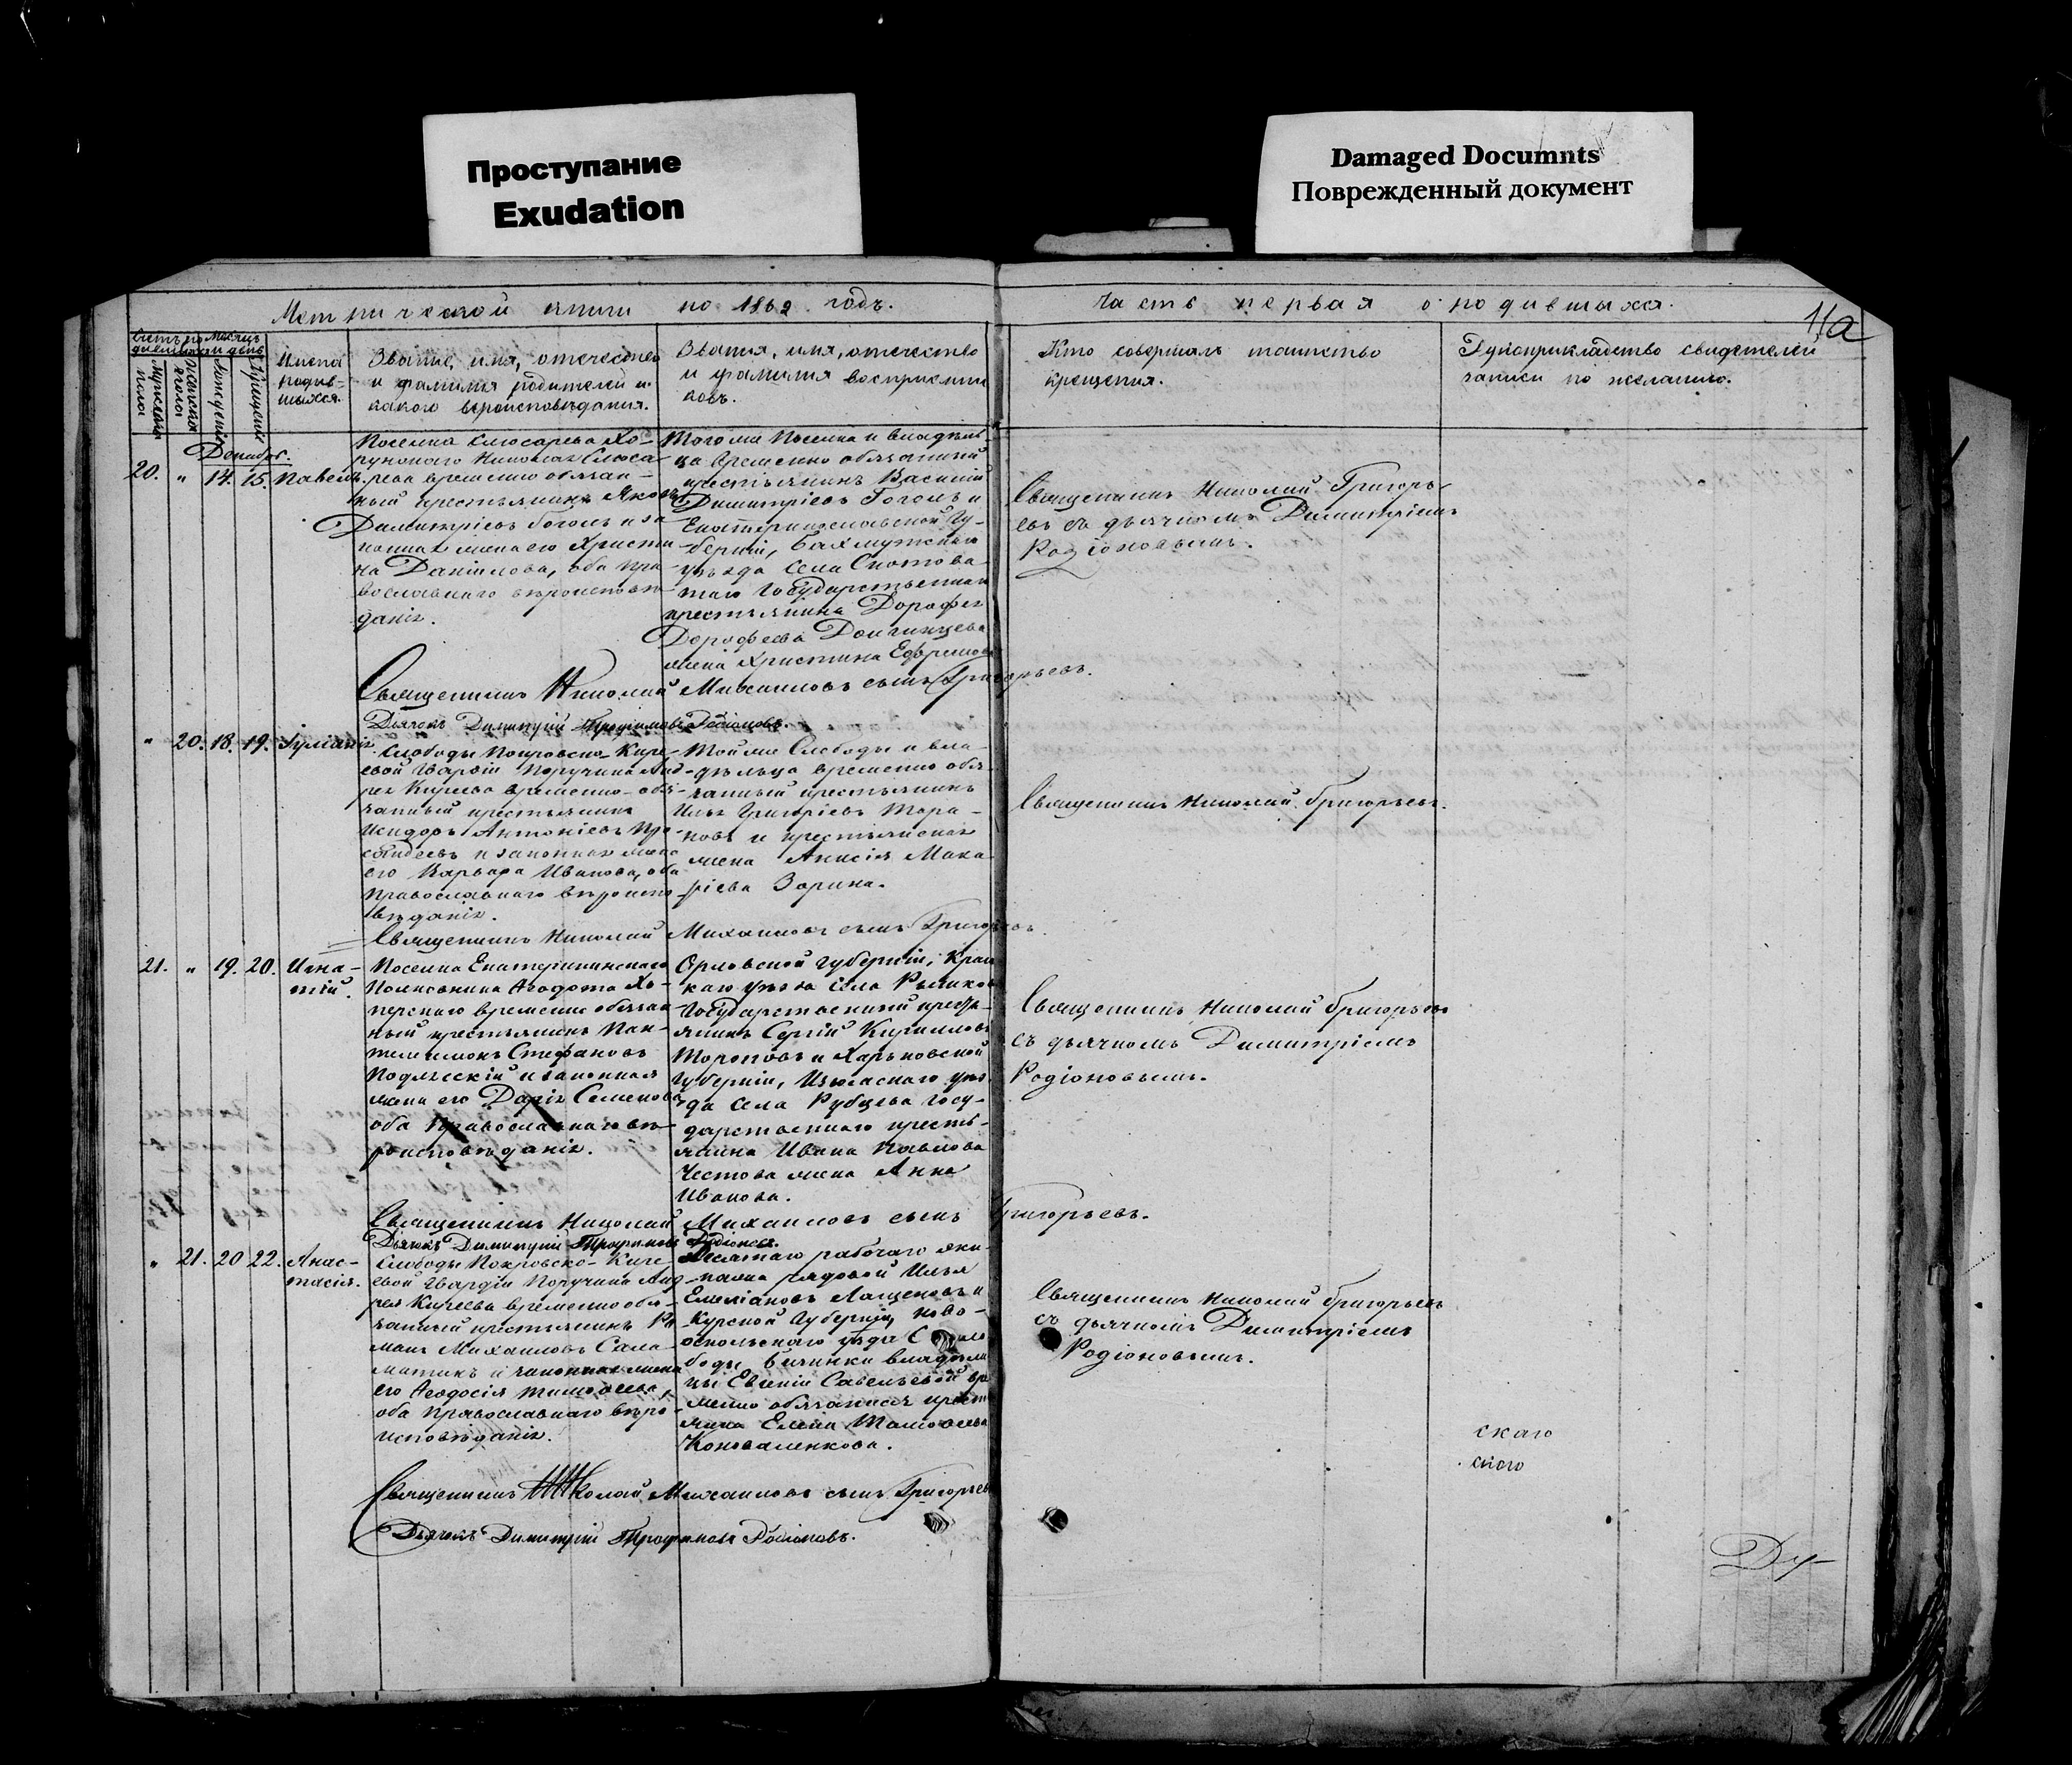 Проступание
Exudation
Damaged Documnts
Поврежденный документ
Метрической книги на 1862 годъ.
Часть первая о родившихся.
11а
Счетъ родившихся
Мѣсяцъ и день
мужеска пола
женска пола
рожденія
крещенія
Имена
родив-
шихся.
Званіе, имя, отечество
и фамилія родителей и
какого вѣроисповѣданія.
Званія, имя, отечество
и фамилія воспріемни
ковъ.
Кто совершалъ таинство
крещенія.
Рукоприкладство свидетелей
записи по желанію.
Декабрь.
20. " 14. 15. Павелъ.
Поселка Слюсарева Хо-
рунжаго Николая Слюса-
рева временно обязан-
ный крестьянинъ Яковъ
Димитріевъ Гоголь и за
конная жена его Христи
на Данилова, оба пра-
вославнаго вѣроисповѣ-
данія.
Тогоже Поселка и владѣль
ца временно обязанный
крестьянинъ Василій
Димитріевъ Гоголь и
Екатеринославской Гу-
берніи, Бахмутскаго
уѣзда Села Скотова
таго Государственнаго
крестьянина Дорофея
Дорофеева Долгинцева
жена Христина Ефремова
Священникъ Николай Григорь-
евъ съ дьячкомъ Димитріемъ
Родіоновымъ.
Священникъ Николай Михаиловъ сынъ Григорьевъ.
Дьячокъ Димитрій Трофимовъ Родіоновъ.
" 20. 18. 19. Іуліанія
Слободы Покровско-Кире-
евой Гвардіи Поручика Анд-
рея Киреева временно-обя-
занный крестьянинъ
Исидоръ Антоніевъ
и законная жена
его Варвара Иванова, оба
Православнаго вѣроиспо-
вѣданія.
Тойже Слободы и вла-
дѣльца временно обя-
занный крестьянинъ
Илья Григоріевъ Тара-
новъ и крестьянская
жена Анисія Мака-
ріева Зорина.
Священникъ Николай Григорьевъ.
Священникъ Николай Михаиловъ сынъ Григорьевъ.
21. " 19. 20. Игна-
тій.
Поселка Екатерининскаго
Полковника Ѳеодота Хо-
перскаго временно обязан-
ный крестьянинъ Пан-
телеимонъ Стефановъ
Подлѣсскій и законная
жена его Дарія Семенова
оба Православнаго вѣ-
роисповѣданія.
Орловской Губерніи,
уѣзда Села
Государственный крестъ-
янинъ Сергій Кирилловъ
Тороповъ и Харьковской
Губерніи, Изюмскаго уѣз-
да Села Рубцева Госу-
дарственнаго кресть-
янина Ивана Павлова
Честова жена Анна
Иванова.
Священникъ Николай Григорьевъ
съ дьячкомъ Димитріемъ
Родіоновымъ.
Священникъ Николай Михаиловъ сынъ Григорьевъ.
Дьячокъ Димитрій Трофимовъ Родіоновъ.
" 21. 20 22. Анас-
тасія.
Слободы Покровско-Кире-
евой Гвардіи Поручика Анд
рея Киреева временно обя-
занный крестьянинъ Ро
манъ Михаиловъ Сала-
матинъ и законная жена
его Ѳеодосія Тимоѳеева,
оба Православнаго вѣро-
исповѣданія.
Десятаго рабочаго эки-
пажа рядовой Илья
Емеліановъ Лащеновъ и
Курской Губерніи, Ново-
оскольскаго уѣзда Сло
боды владѣли
цы Евгеніи Савельевой вре
менно обязанная крестъ
янка Елена Тимоѳеева
Коноваленкова.
Священникъ Николай Григорьевъ
съ дьячкомъ Димитріемъ
Родіоновымъ.
скаго
скаго
Священникъ Николай Михаиловъ сынъ Григорьевъ
Дьячокъ Димитрій Трофимовъ Родіоновъ.
Ду-